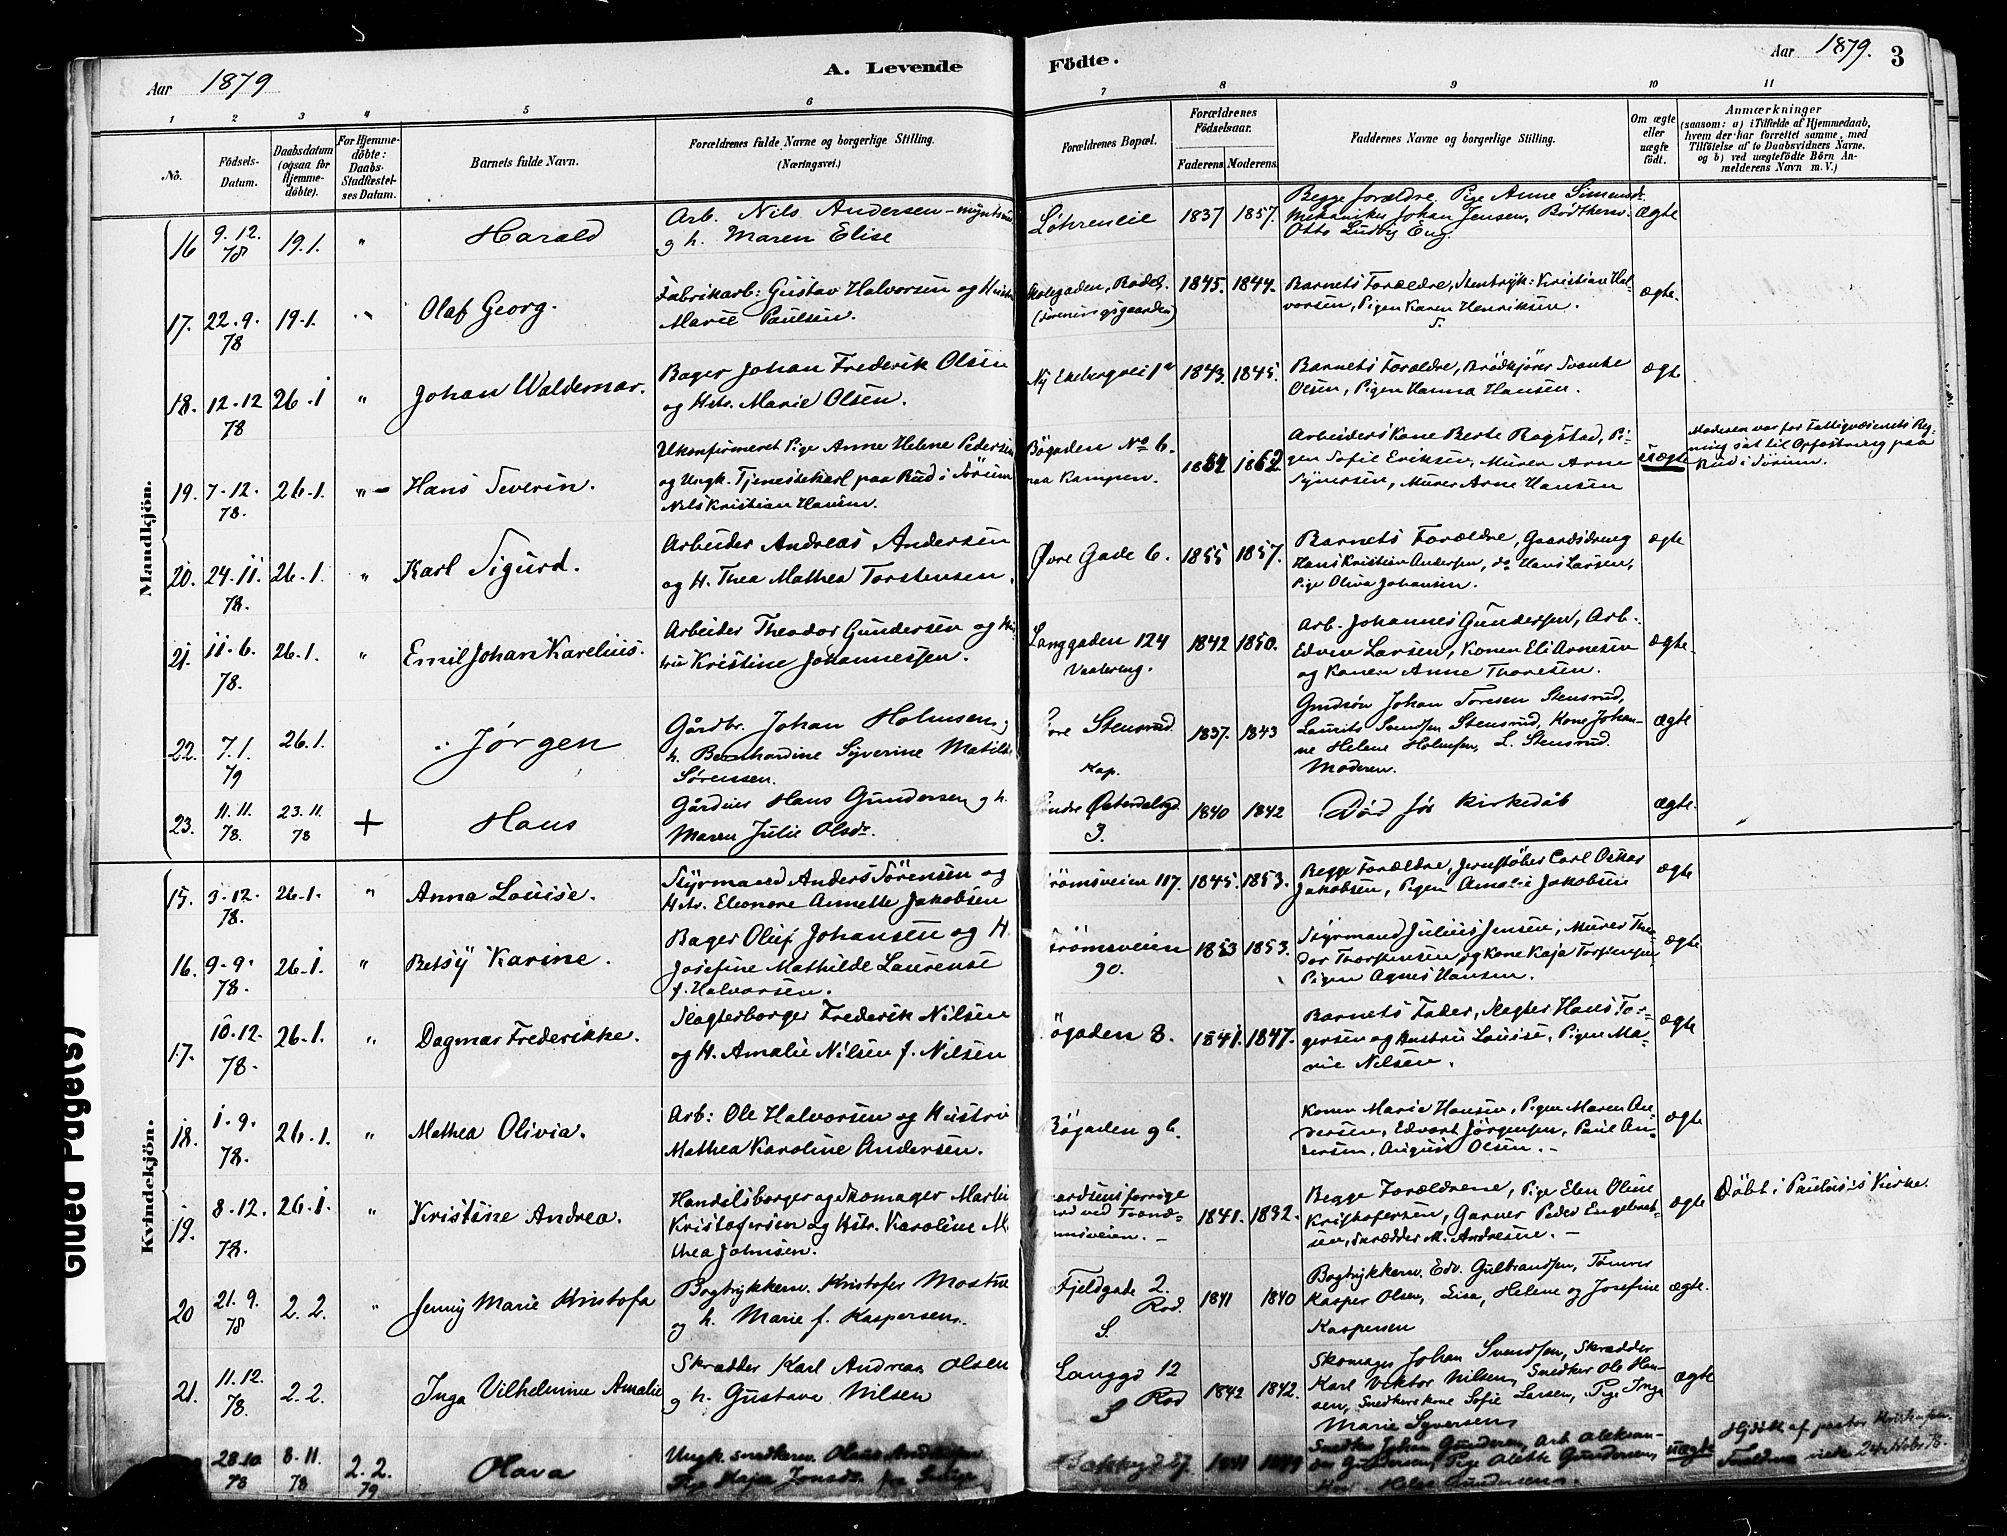 Aar 1879
A. Levende Födte.
Aar 1879. 3
1 2 3 4 5 6 7 8 9 10 11
No.
Födsels-Datum.
Daabsdatum (ogsaa for Hjemme-döbte).
For Hjemme-döbte: Daabs-Stadfæstel-ses Datum.
Barnets fulde Navn.
Forældrenes fulde Navne og borgerlige Stilling.
(Næringsvei.)
Forældrenes Bopæl.
Forældrenes Födselsaar.
Faderens. Moderens.
Faddernes Navne og borgerlige Stilling.
Om ægte eller uægte födt.
Anmærkninger
(saasom: a) i Tilfælde af Hjemmedaab,
hvem der har forrettet samme, med
Tilföielse af to Daabsvidners Navne.
og b) ved uægtefödte Börn An-
melderens Navn m. V.)
Mandkjön.
16 9.12. 78 19.1. " Harald
Arb. Nils Andersen
g h. Maren Elise
1837 1857.
Begge forældre, Pige Anne
Mekaniker Johan Jensen,
Otto Ludvig Eng.
ægte
17. 22.9. 78 19.1. " Olaf Georg.
Fabrikarb: Gustav Halvorsen og Hustr
Marie Paulsen.
1845. 1844.
Barnets Forældre, Kristian Hal-
vorsen, Pigen Karen Henriksen.
ægte.
18. 12.12 78 26.1 " Johan Waldemar.
Bager Johan Frederik Olsen
og Hstr. Marie Olsen.
Ny Ekebergvei 1a 1843. 1845.
Barnets Forældre, Brödkjörer
Olsen, Pigen Hanna Hansen.
ægte
19. 7.12. 78. 26.1. " Hans Severin.
Ukonfirmeret Pige Anne Helene Pedersen
og Ungk. Tjenestekarl paa Rud i Sörum
Nils Kristian Hansen.
Bögaden No 6.
paa Kampen.
1862
Arbeiders Kone Berte Rogstad, Pi-
gen Sofie Eriksen, Murer Arne
Syversen, Murer Arne Hansen
uægte
Moderen var for Fattigvæsenets Reg-
ning sat til Opfostring paa
Rud i Sörum.
20. 24.11. 78. 26.1. " Karl Sigurd.
Arbeider Andreas Andersen
og H. Thea Mathea Torstensen.
Øvre Gade 6. 1855 1857.
Barnets Forældre, Gaardsdreng
Hans Kristian Andersen, do Hans Larsen,
Pige Oliva Johansen.
ægte
21. 11.6. 78. 26.1. " Emil Johan Karelius.
Arbeider Theodor Gundersen og Hu
tru Kristine Johannessen.
Langgaden 124
Vaalereng.
1842 1850.
Arb. Johannes Gundersen, Arb.
Edvin Larsen, Konen Eli Arnesen
og Konen Anne Thoresen.
ægte.
22. 7.1. 79 26.1. " Jørgen
Gårdbr. Johan Holmsen g
h. Bernhardine Syverine Matilde
Sørensen.
Stensrud
1837. 1843
Gmdsøn Johan Toresen Stensrud,
Laurits Stensrud, Kone Johan-
ne Helene Holmsen, L. Stensrud.
Moderen.
ægte
23. 11.11. 78. 23.11 78 + Hans
Hans Gundersen g h.
Maren Julie Olsdr.
3.
1840 1842
Død før kirkedåb
ægte.
Kvindekjön.
15. 3.12. 78. 26.1. " Anna Louise.
Styrmand Anders Sörensen og
Hstr. Eleonore Annette Jakobsen
römsveien 117. 1845. 1853.
Begge Forældre, Jernstöber Carl Oskar
Jakobsen, Pigen Amalie Jakobsen
ægte
16. 9.9. 78. 26.1. " Betsy Karine.
Bager Oluf Johansen og H.
Josefine Mathilde Laurense
f. Halvorsen.
römsveien
90.
1853 1853.
Styrmand Julius Jensen, Murer The-
dor Thorstensen og Kone Kaja Torstensen,
Pigen Agnes Hansen.
ægte
17. 10.12. 78. 26.1. " Dagmar Frederikke.
Slagterborger Frederik Nilsen
og H. Amalie Nilsen f. Nilsen
ögaden 8. 1841. 1847.
Barnets Fader, Slagter Hans Tor-
gersen og Hustru Louise, Pigen Ma-
rie Nilsen.
ægte
18. 1.9. 78. 26.1. " Mathea Olivia.
Arb: Ole Halvorsen og Hustru
Mathea Karoline Andersen.
Bögaden 9b.
Konen Marie Hansen, Pigen Maren An-
dersen, Edvart Jörgensen, Paul An-
dersen, August Olsen.
ægte
19. 8.12. 78. 26.1. " Kristine Andrea.
Handelsborger og Skomager Martin
Kristofersen og Hstr. Karoline M
thea Johnsen.
1841. 1832.
Begge Forældrene, Pige Elen Oline
Kristofersen, Garver Peder Engebret-
sen, Skrædder M. Andresen.
ægte
Döbt i Paulus's Kirke.
20 21.9. 78 2.2. " Jenny Marie Kristofa
Bogtrykkersv. Kristofer
og h. Marie f. Kaspersen.
Fjeldgade 2.
Rod.
S.
1841 1840
Bogtrykkersv. Edv. Gulbrandsen, Tømrer
Kasper Olsen, Lisa, Helene og Josefine
Kaspersen
ægte.
21. 11.12. 78. 2.2. Inga Vilhelmine Amalie
Skrædder Karl Andreas Olsen
g h. Gustava Nilsen
Langgd 12
Rod
S
1842 1842.
Skomager Johan Svendsen, Skrædder
Karl Viktor Nilsen, Snedker Ole Han-
sen, Snedkerkone Sofie Larsen, Pige Inga
Marie Syversen,
ægte
28.10 78 8.11. 78 2.2. 79 Olava
Ungk. snedkersv.
Pige Kaja
Snedker Johan Gundersen, Arb.
Gundersen, Pige Gundersen,
Helene Gundersen.
uægte
Hjdøbt af pastor
Glued Page(s)